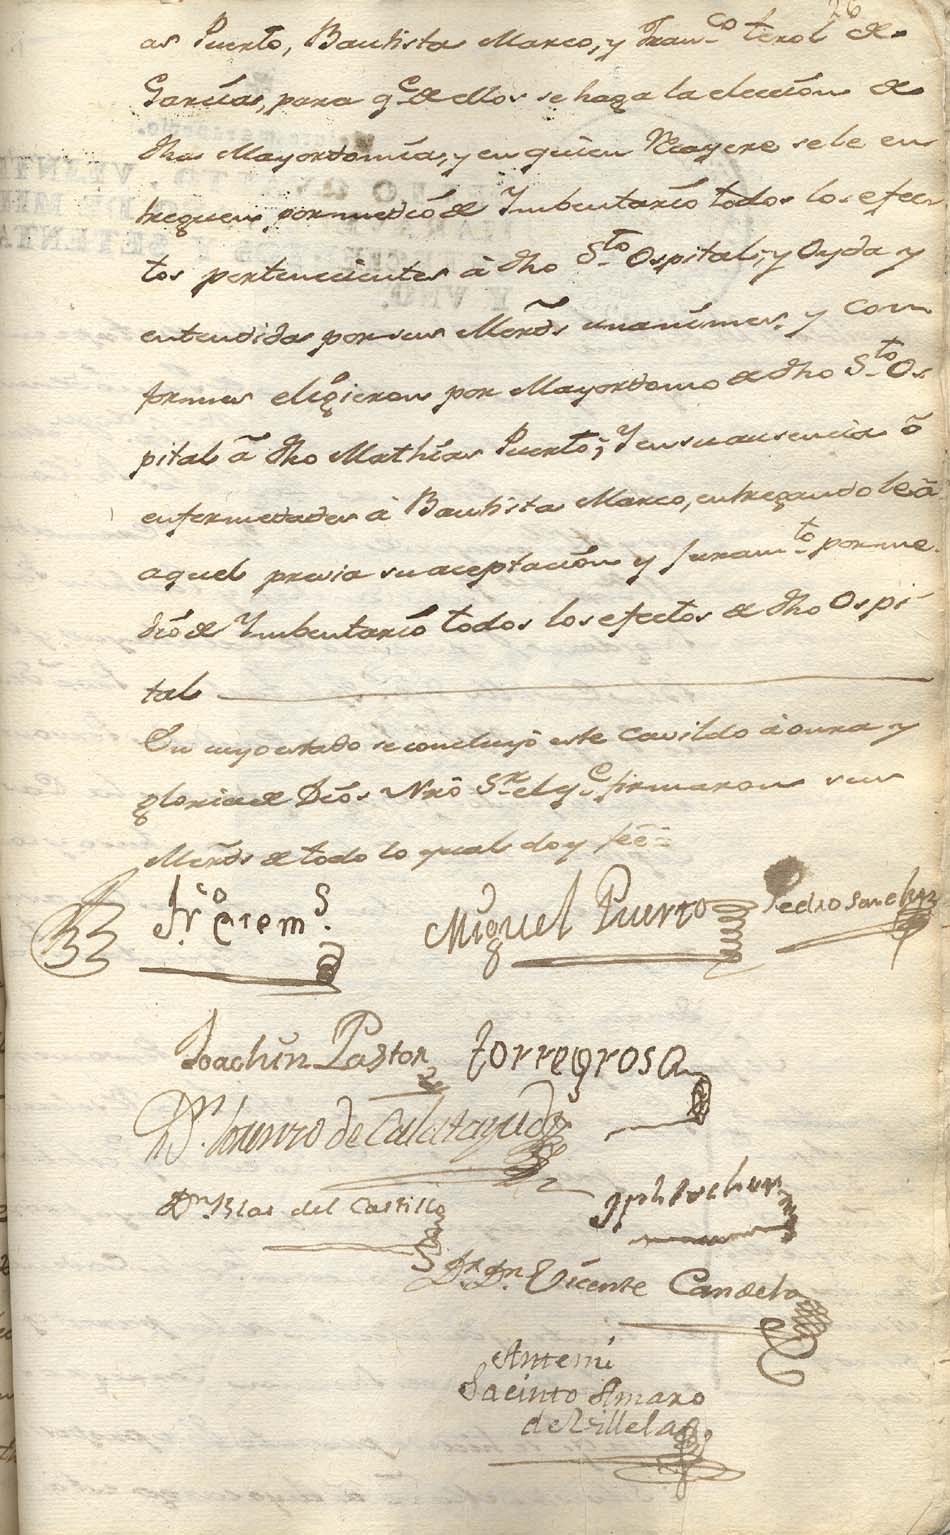 26
as Puerto, Bautista Marco, y Fran.co Terol de
Garcia, para q.e de ellos se haga la eleccion de
dha Mayordomia, y en quien Recayere se le en
treguen por medio de Imbentario todos los efec
tos pertenecientes à dho S.to Ospital; y Oyda y
entendida por sus Merds. unanimes, y con
formes eligieron por Mayordomo de dho S.to Os
pital à dho Mathias Puerto; Y en su ausencia ò
enfermedades à Bautista Marco, entregandole à
aquel previa su aceptacion y Juram.to por me
dio de Imbentario todos los efectos de dho Ospi
tal
En cuyo estado se concluyó este Cavildo à onra y
gloria de Dios Nrō S.r el q.e firmaron sus
Merds. de todo lo qual doy feé=
Miguel Puerto Pedro Sanchez
Joachin Pastor Torregrosa
D.n Lorenzo de Calatayud
D.n Blas del Castillo
D.r D.n Vicente Candela
Antemi
Jacinto Amaro
de Villela